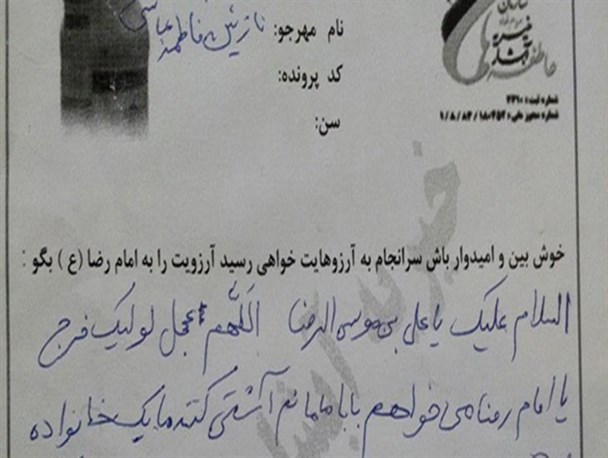 نام مهرجو: نازنین فاطمه عباسی
کد پرونده:
سن:
سازمان
خیریه
آبشار
عاطفه‌ها
شماره ثبت: ۲۳۱۰
شماره مجوز ملی: ۱۸۰۴۵۲ / ۱/۸/۸۳
خوش بین و امیدوار باش سرانجام به آرزوهایت خواهی رسید آرزویت را به امام رضا (ع) بگو :
السلام علیک یا علی بن موسی الرضا اللّهم عجل لولیک فرج
یا امام رضا می خواهم بابا مامانم آشتی کنند ما یک خانواده